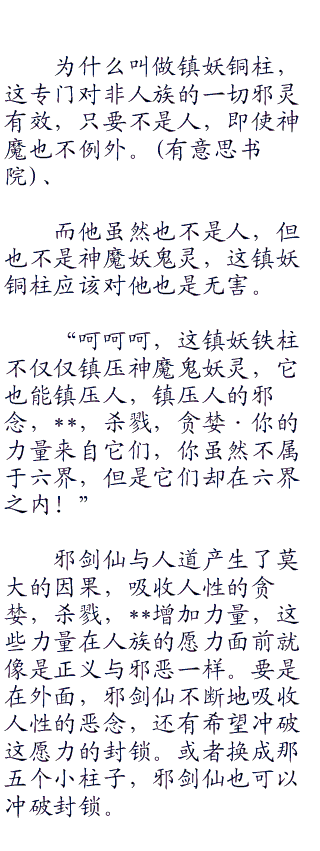 为什么叫做镇妖铜柱，
这专门对非人族的一切邪灵
有效，只要不是人，即使神
魔也不例外。(有意思书
院)、
而他虽然也不是人，但
也不是神魔妖鬼灵，这镇妖
铜柱应该对他也是无害。
“呵呵呵，这镇妖铁柱
不仅仅镇压神魔鬼妖灵，它
也能镇压人，镇压人的邪
念，**，杀戮，贪婪·你的
力量来自它们，你虽然不属
于六界，但是它们却在六界
之内！”
邪剑仙与人道产生了莫
大的因果，吸收人性的贪
婪，杀戮，**增加力量，这
些力量在人族的愿力面前就
像是正义与邪恶一样。要是
在外面，邪剑仙不断地吸收
人性的恶念，还有希望冲破
这愿力的封锁。或者换成那
五个小柱子，邪剑仙也可以
冲破封锁。